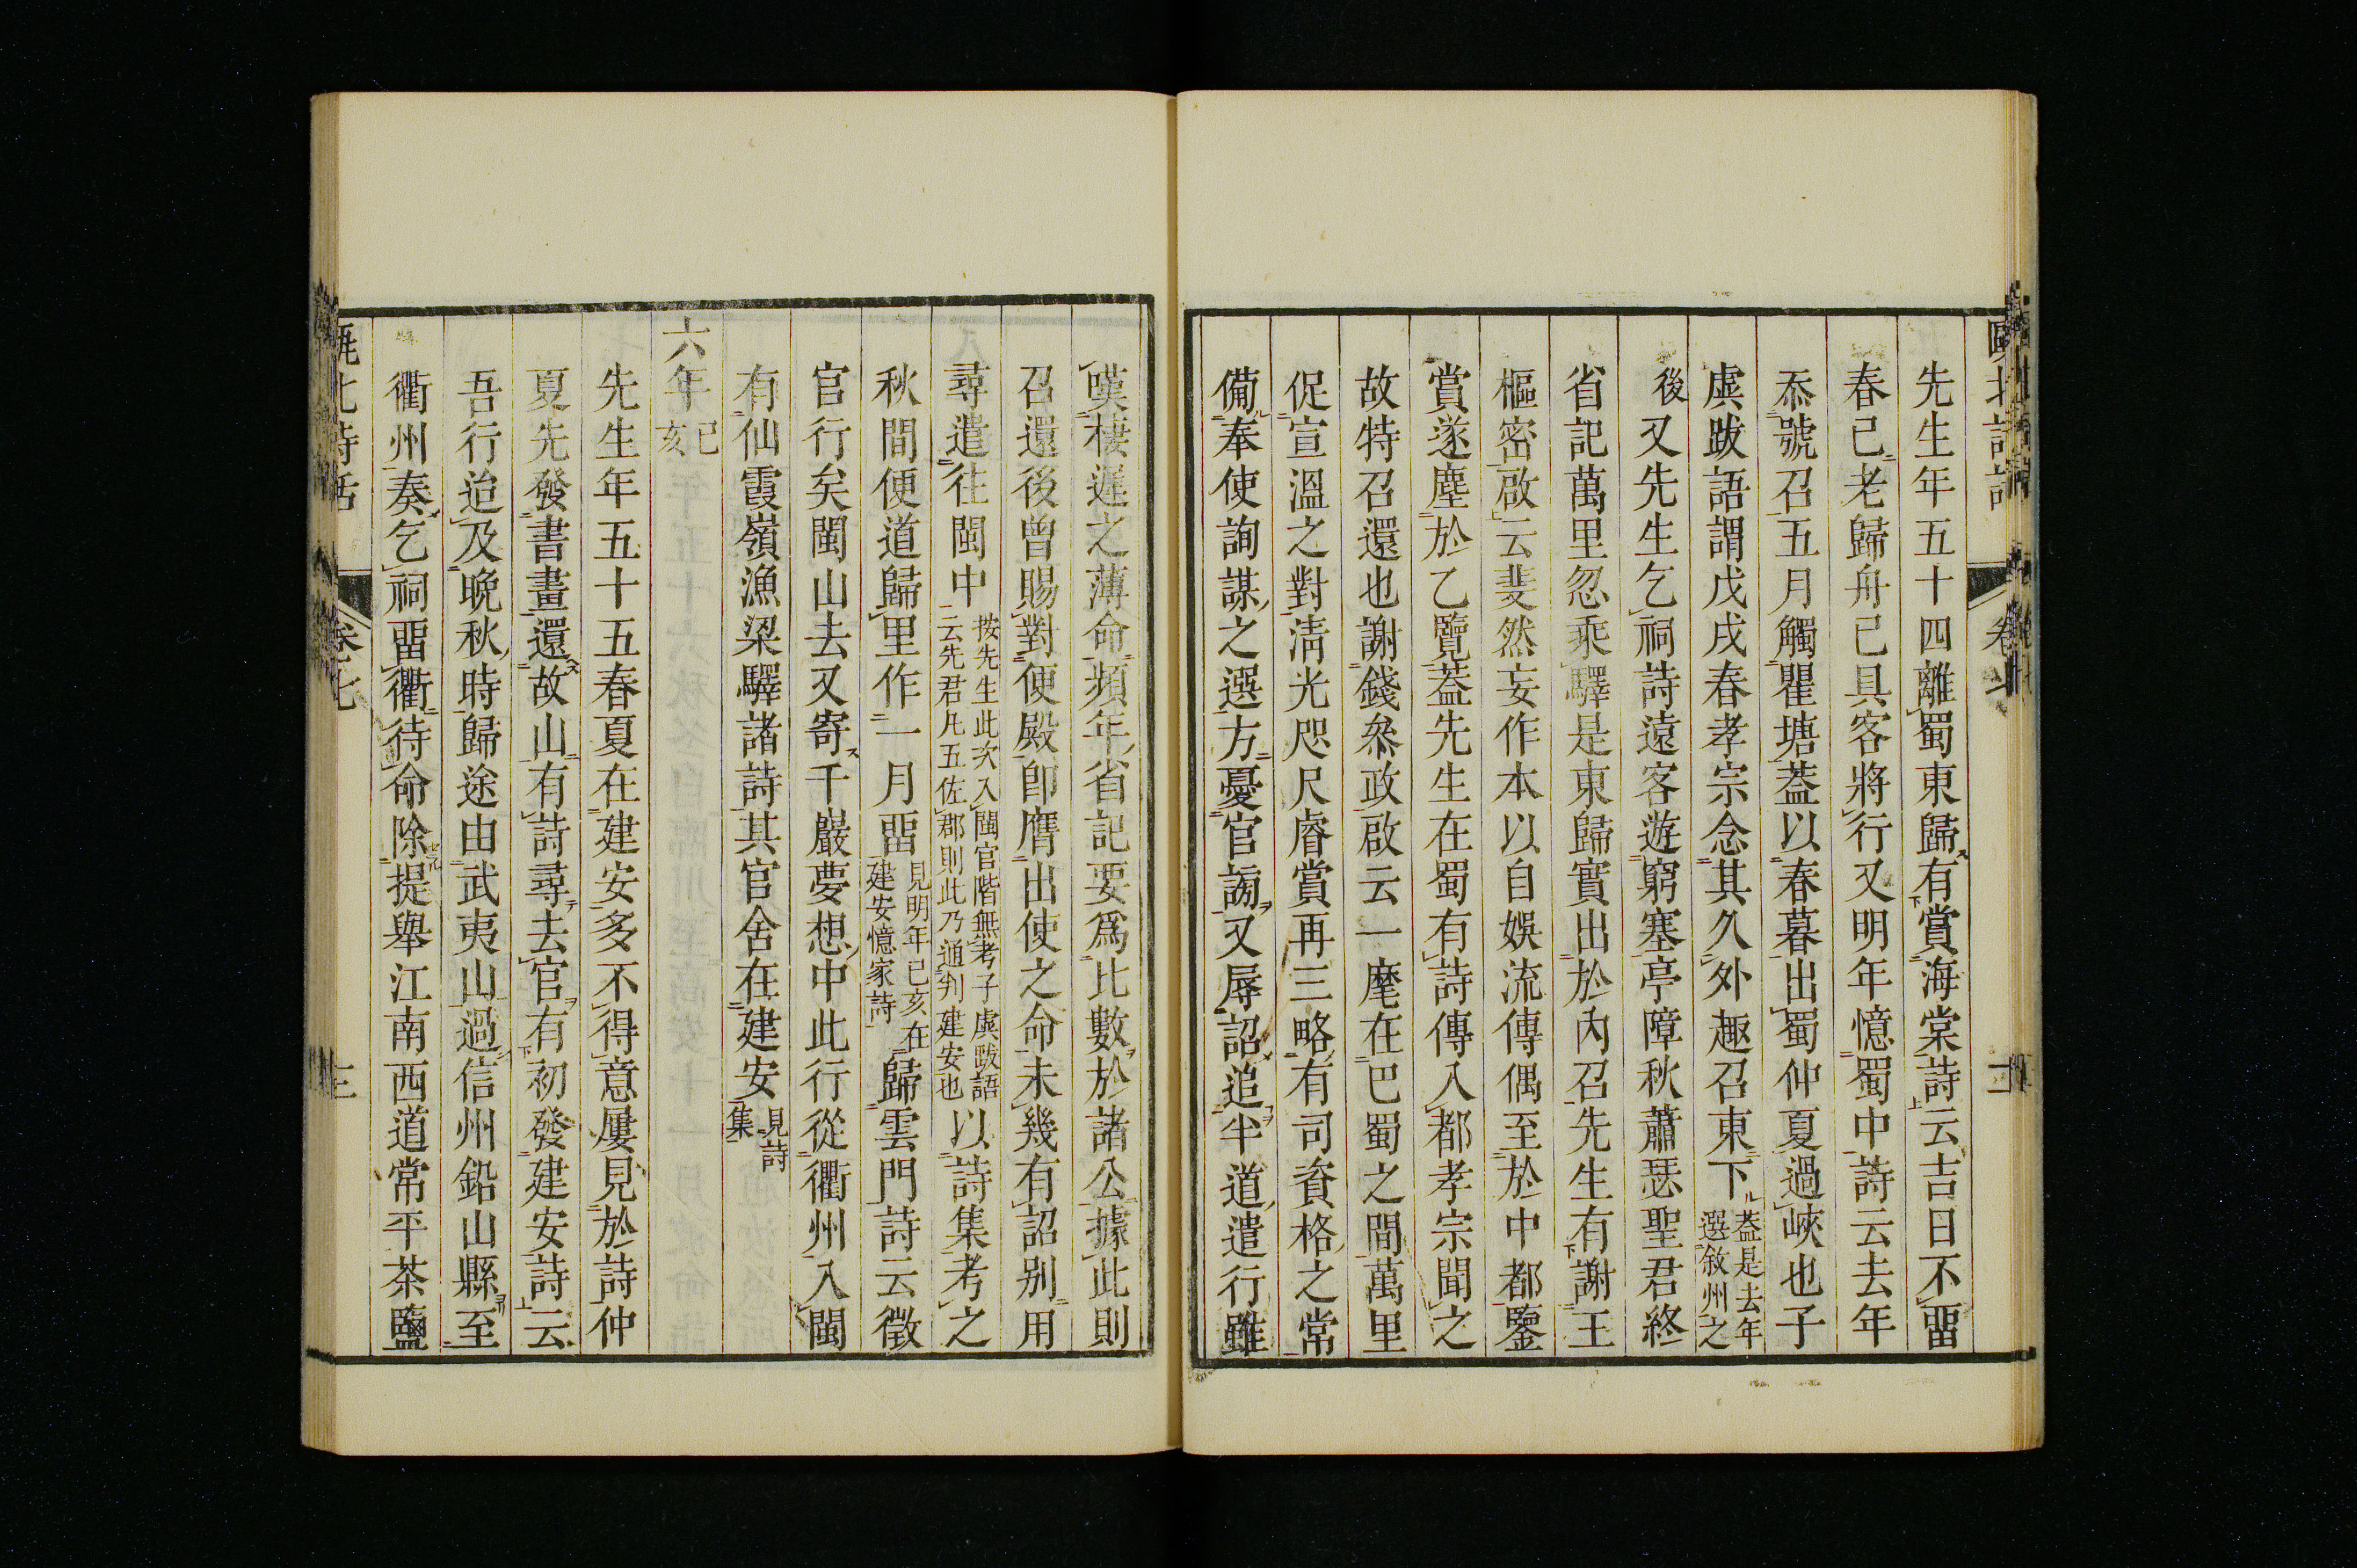 先生年五十四離蜀東歸有賞海棠詩云吉日不畱
春已老歸舟已具客將行又明年憶蜀中詩云去年
忝號召五月觸瞿塘蓋以春暮出蜀仲夏過峽也子
虡跋語謂戊戌春孝宗念其久外趣召東下蓋是去年選敘州之
後又先生乞祠詩遠客遊窮塞亭障秋蕭瑟聖君終
省記萬里忽乘驛是東歸實出於內召先生有謝王
樞密啟云斐然妄作本以自娛流傳偶至於中都鑒
賞遂塵於乙覽蓋先生在蜀有詩傳入都孝宗聞之
故特召還也謝錢叅政啟云一麾在巴蜀之間萬里
促宣溫之對清光咫尺睿賞再三略有司資格之常
備奉使詢謀之選方憂官謗又辱詔追半道遣行雖
嘆棲遲之薄命頻年省記要爲比數於諸公據此則
召還後曾賜對便殿卽膺出使之命未幾有詔別用
尋遣往閩中按先生此次入閩官階無考子虡跋語云先君凡五佐郡則此乃通判建安也以詩集考之
秋間便道歸里作一月畱見明年已亥在建安憶家詩歸雲門詩云徵
官行矣閩山去又寄千巖夢想中此行從衢州入閩
有仙霞嶺漁梁驛諸詩其官舍在建安見詩集
六年已亥
先生年五十五春夏在建安多不得意屢見於詩仲
夏先發書畫還故山有詩尋去官有初發建安詩云
吾行迨及晚秋時歸途由武夷山過信州鉛山縣至
衢州奏乞祠畱衢待命除提舉江南西道常平茶鹽
甌北詩話
卷七
三